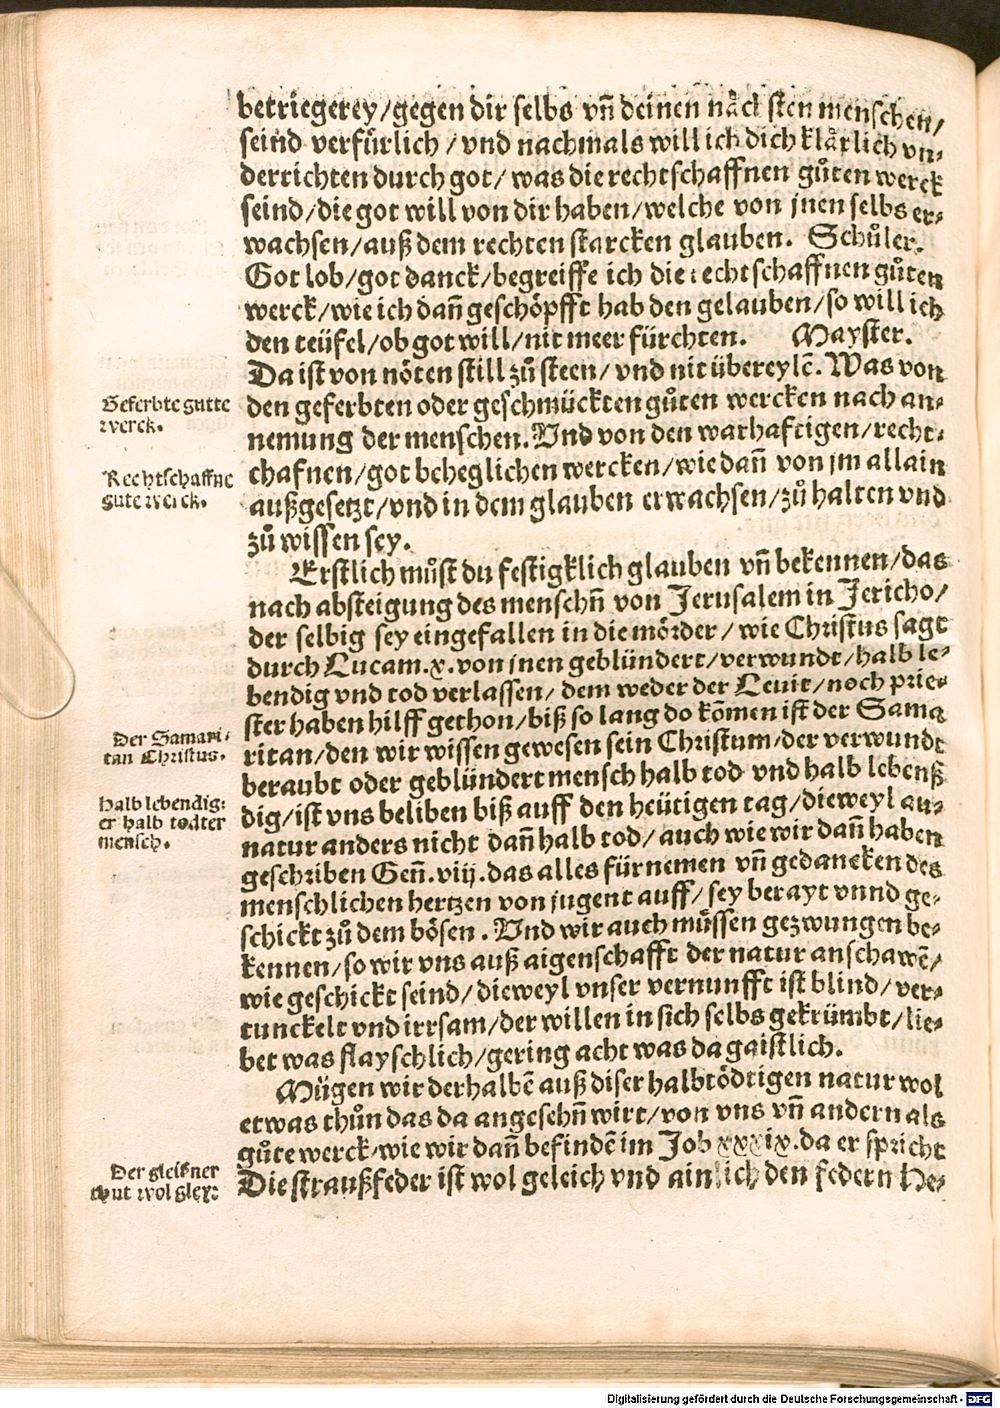 betriegerey/gegen dir selbs vñ deinen nächsten menschen/
seind verfürlich/vnd nachmals will ich dich klärlich vn-
derrichten durch got/was die rechtschaffnen gůten werck
seind/die got will von dir haben/welche von jnen selbs er-
wachsen/auß dem rechten starcken glauben. Schůler.
Got lob/got danck/begreiffe ich die rechtschaffnen gůten
werck/wie ich dañ geschöpfft hab den gelauben/so will ich
den teüfel/ob got will/nit meer fürchten. Mayster.
Da ist von nöten still zů steen/vnd nit übereylē. Was von
Geferbte gutte
werck.
den geferbten oder geschmückten gůten wercken nach an-
nemung der menschen. Vnd von den warhafftigen/recht-
Rechtschaffne
gute werck.
chafnen/got beheglichen wercken/wie dañ von jm allain
außgesetzt/vnd in dem glauben erwachsen/zů halten vnd
zů wissen sey.
Erstlich můst du festigklich glauben vñ bekennen/das
nach absteigung des menschñ von Jerusalem in Jericho/
der selbig sey eingefallen in die mörder/wie Christus sagt
durch Lucam.x.von jnen geblündert/verwundt/halb le-
bendig vnd tod verlassen/dem weder der Leuit/noch prie-
ster haben hilff gethon/biß so lang do kōmen ist der Sama
Der Samari-
tan Christus.
ritan/den wir wissen gewesen sein Christum/der verwundt
beraubt oder geblündert mensch halb tod vnd halb lebens
Halb lebendig:
er halb todter
mensch.
dig/ist vns beliben biß auff den heütigen tag/dieweyl au-
natur anders nicht dañ halb tod/auch wie wir dañ haben
geschriben Geñ.viij.das alles fürnemen vñ gedancken des
menschlichen hertzen von jugent auff/sey berayt vnnd ge-
schickt zů dem bösen. Vnd wir auch müssen gezwungen be-
kennen/so wir vns auß aigenschafft der natur anschawē/
wie geschickt seind/dieweyl vnser vernunfft ist blind/ver-
tunckelt vnd irrsam/der willen in sich selbs gekrümbt/lie-
bet was flayschlich/gering acht was da gaistlich.
Mügen wir derhalbē auß diser halbtödtigen natur wol
etwas thůn das da angesehñ wirt/von vns vñ andern als
gůte werck/wie wir dañ befindē im Job xxxix.da er spricht
Der gleißner
thut wol gley:
Die straußfeder ist wol geleich vnd ainlich den federn He-
Digitalisierung gefördert durch die Deutsche Forschungsgemeinschaft - DFG